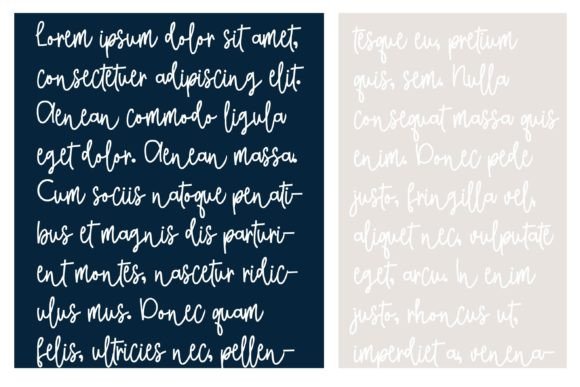 Lorem ipsum dolor sit amet,
consectetuer adipiscing elit.
Aenean commodo ligula
eget dolor. Aenean massa.
Cum sociis natoque penati-
bus et magnis dis parturi-
ent montes, nascetur ridic-
ulus mus. Donec quam
felis, ultricies nec, pellen-
tesque eu, pretium
quis, sem. Nulla
consequat massa quis
enim. Donec pede
justo, fringilla vel,
aliquet nec, vulputate
eget, arcu. In enim
justo, rhoncus ut,
imperdiet a, venena-